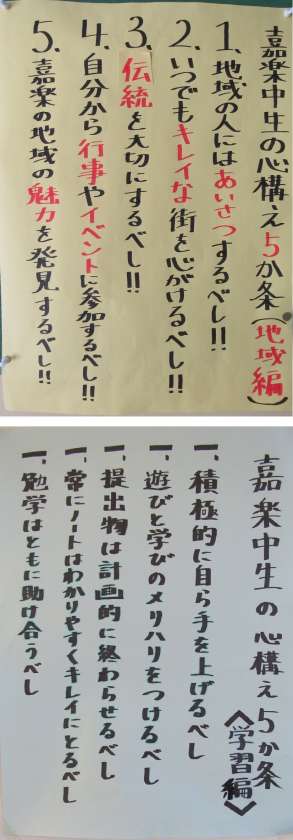 嘉楽中生の心構え5か条(地域編)
1、地域の人にはあいさつするべし!!
2、いつでもキレイな街を心がけるべし!!
3、伝統を大切にするべし!!
4、自分から行事やイベントに参加するべし!!
5、嘉楽の地域の魅力を発見するべし!!
嘉楽中生の心構え5か条
〈学習編〉
一、積極的に自ら手を上げるべし
一、遊びと学びのメリハリをつけるべし
一、提出物は計画的に終わらせるべし
一、常にノートはわかりやすくキレイにとるべし
一、勉学はともに助け合うべし